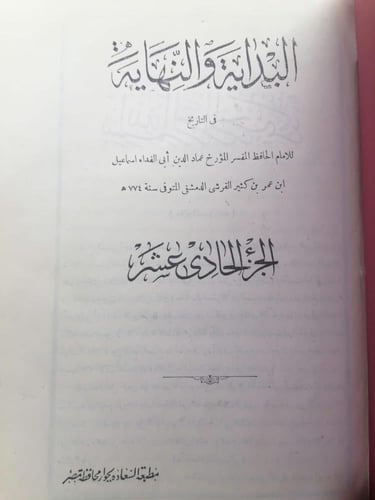 البداية والنهاية
فى التاريخ
للامام الحافظ المفسر المؤرخ عماد الدين أبى الفداء اسماعيل
ابن عمر بن كثير القرشى الدمشقى المتوفى سنة ٧٧٤ هـ
الجزء الحادى عشر
مطبعة السعادة بجوار محافظة مصر